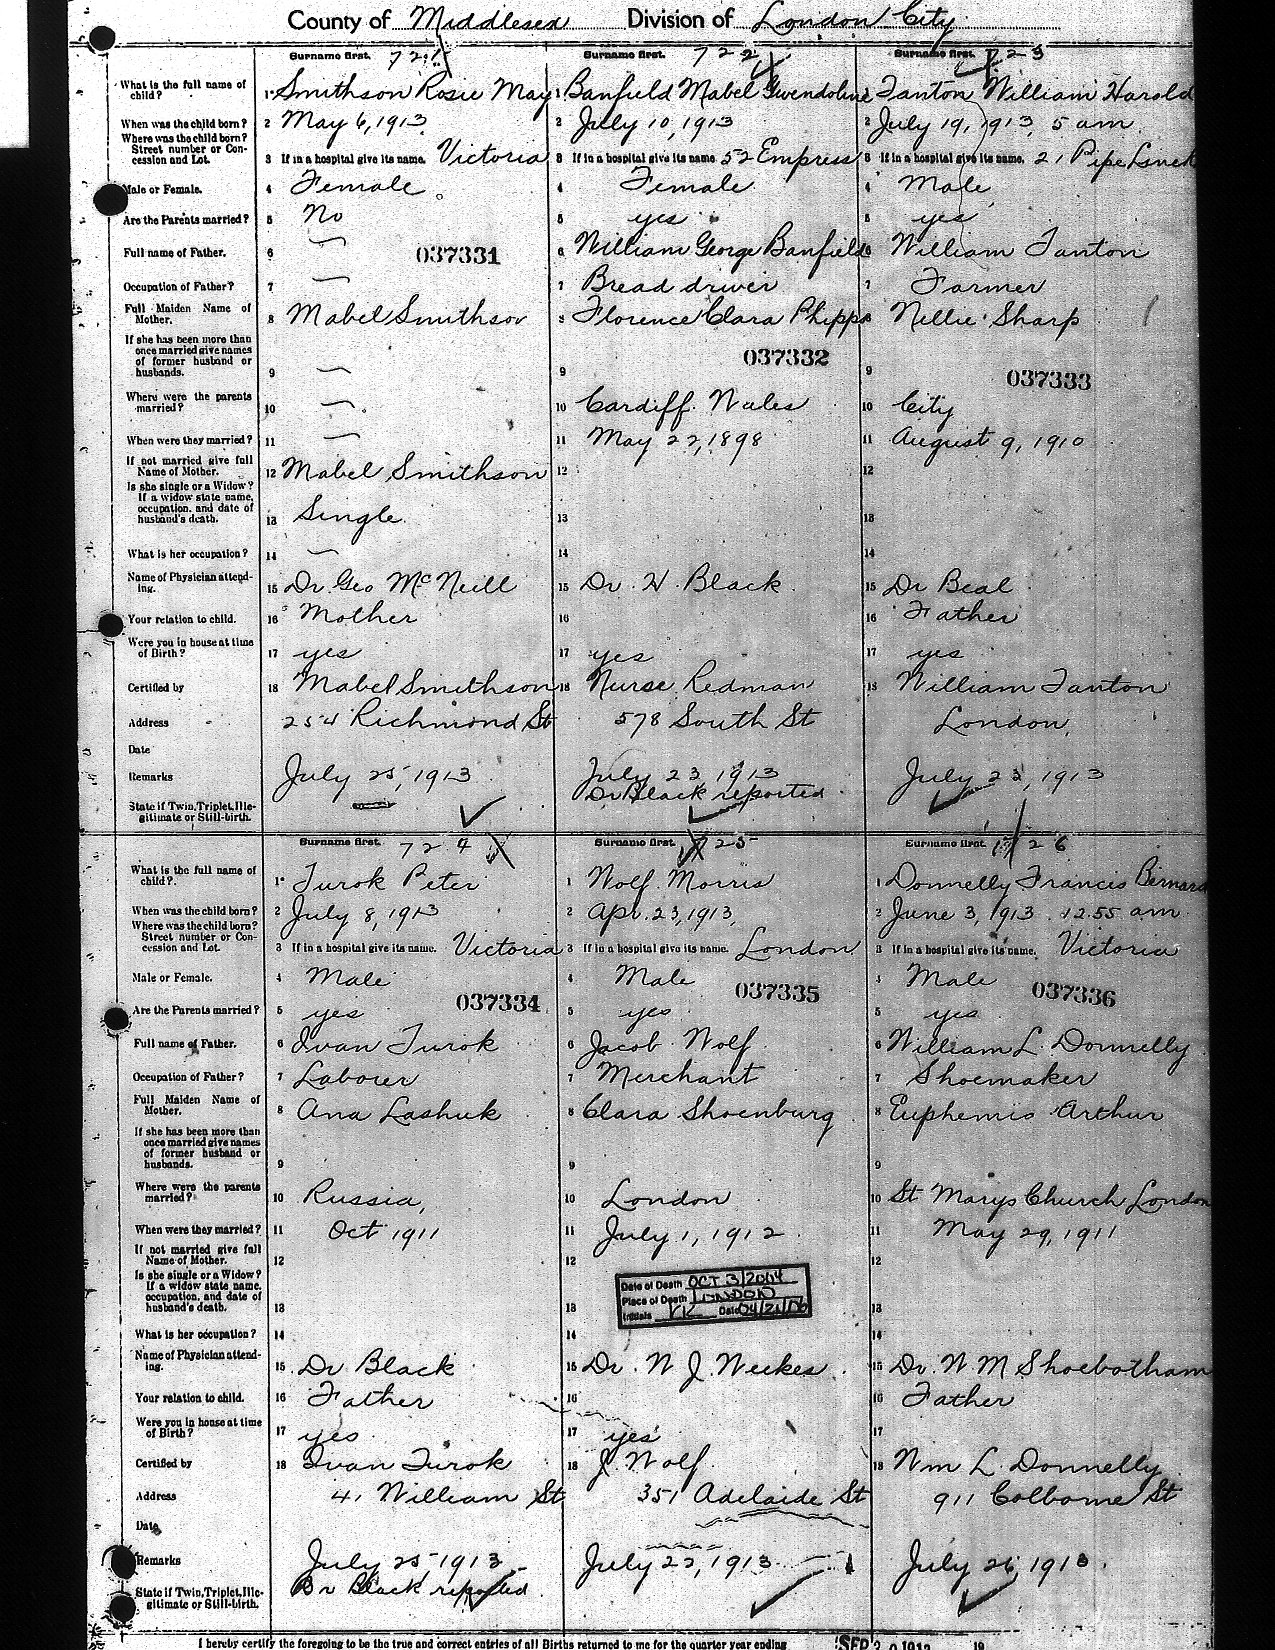 County of Middlesex Division of London City
Surname first. 721 Surname first. 722 Surname first. 723
What is the full name of child? 1 Smithson Rosie May 1 Banfield Mabel Gwendoline Tanton William Harold
When was the child born? 2 May 6, 1913 2 July 10, 1913 2 July 19, 1913, 5 am
Where was the child born? Street number or Concession and Lot. 3 If in a hospital give its name. Victoria 3 If in a hospital give its name. 52 Empress 3 If in a hospital give its name. 21 Pipe Line
Male or Female. 4 Female 4 Female 4 Male
Are the Parents married? 5 No 5 yes 5 yes
Full name of Father. 6 — 037331 6 William George Banfield 6 William Tanton
Occupation of Father? 7 — 7 Bread driver 7 Farmer
Full Maiden Name of Mother. 8 Mabel Smithson 8 Florence Clara Phipps 8 Nellie Sharp
If she has been more than once married give names of former husband or husbands. 9 — 9 037332 9 037333
Where were the parents married? 10 — 10 Cardiff Wales 10 City
When were they married? 11 — 11 May 22, 1898 11 August 9, 1910
If not married give full Name of Mother. 12 Mabel Smithson 12 12
Is she single or a Widow? If a widow state name, occupation, and date of husband's death. 13 Single 13 13
What is her occupation? 14 — 14 14
Name of Physician attending. 15 Dr. Geo McNeill 15 Dr H. Black 15 Dr Beal
Your relation to child. 16 Mother 16 16 Father
Were you in house at time of Birth? 17 yes 17 yes 17 yes
Certified by 18 Mabel Smithson 18 Nurse Redman 18 William Tanton
Address 254 Richmond St 578 South St London,
Date
Remarks July 25, 1913 July 23, 1913 July 23, 1913
Dr Black reported
State if Twin, Triplet, Illegitimate or Still-birth.
Surname first. 724 Surname first. 725 Surname first. 726
What is the full name of child? 1 Turok Peter 1 Wolf Morris 1 Donnelly Francis Bernard
When was the child born? 2 July 8, 1913 2 Apr. 23, 1913, 2 June 3, 1913 12.55 am
Where was the child born? Street number or Concession and Lot. 3 If in a hospital give its name. Victoria 3 If in a hospital give its name. London 3 If in a hospital give its name. Victoria
Male or Female. 4 Male 4 Male 4 Male
037334 037335 037336
Are the Parents married? 5 yes 5 yes 5 yes
Full name of Father. 6 Ivan Turok 6 Jacob Wolf 6 William L. Donnelly
Occupation of Father? 7 Laborer 7 Merchant 7 Shoemaker
Full Maiden Name of Mother. 8 Ana Lashuk 8 Clara Shoenburg 8 Euphemis Arthur
If she has been more than once married give names of former husband or husbands. 9 9 9
Where were the parents married? 10 Russia, 10 London 10 St Marys Church London
When were they married? 11 Oct 1911 11 July 1, 1912 11 May 29, 1911
If not married give full Name of Mother. 12 12 12
Is she single or a Widow? If a widow state name, occupation, and date of husband's death. 13 13 13
Date of Death OCT 3/2004
Place of Death LONDON
Initials KK Date 04/21/06
What is her occupation? 14 14 14
Name of Physician attending. 15 Dr Black 15 Dr. W J. Weekes 15 Dr. W M Shoebotham
Your relation to child. 16 Father 16 16 Father
Were you in house at time of Birth? 17 yes 17 yes 17
Certified by 18 Ivan Turok 18 J. Wolf 18 Wm L. Donnelly
Address 41 William St 351 Adelaide St 911 Colborne St
Date
Remarks July 25 1913 July 22, 1913 July 26 1913.
Dr Black reported
State if Twin, Triplet, Illegitimate or Still-birth.
I hereby certify the foregoing to be the true and correct entries of all Births returned to me for the quarter year ending SEP 30 1913 19